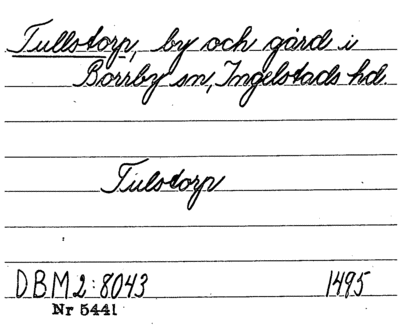 Tullstorp, by och gård i
Borrby sn, Ingelstads hd.
Tulstorp
DBM 2:8043 1495
Nr 5441